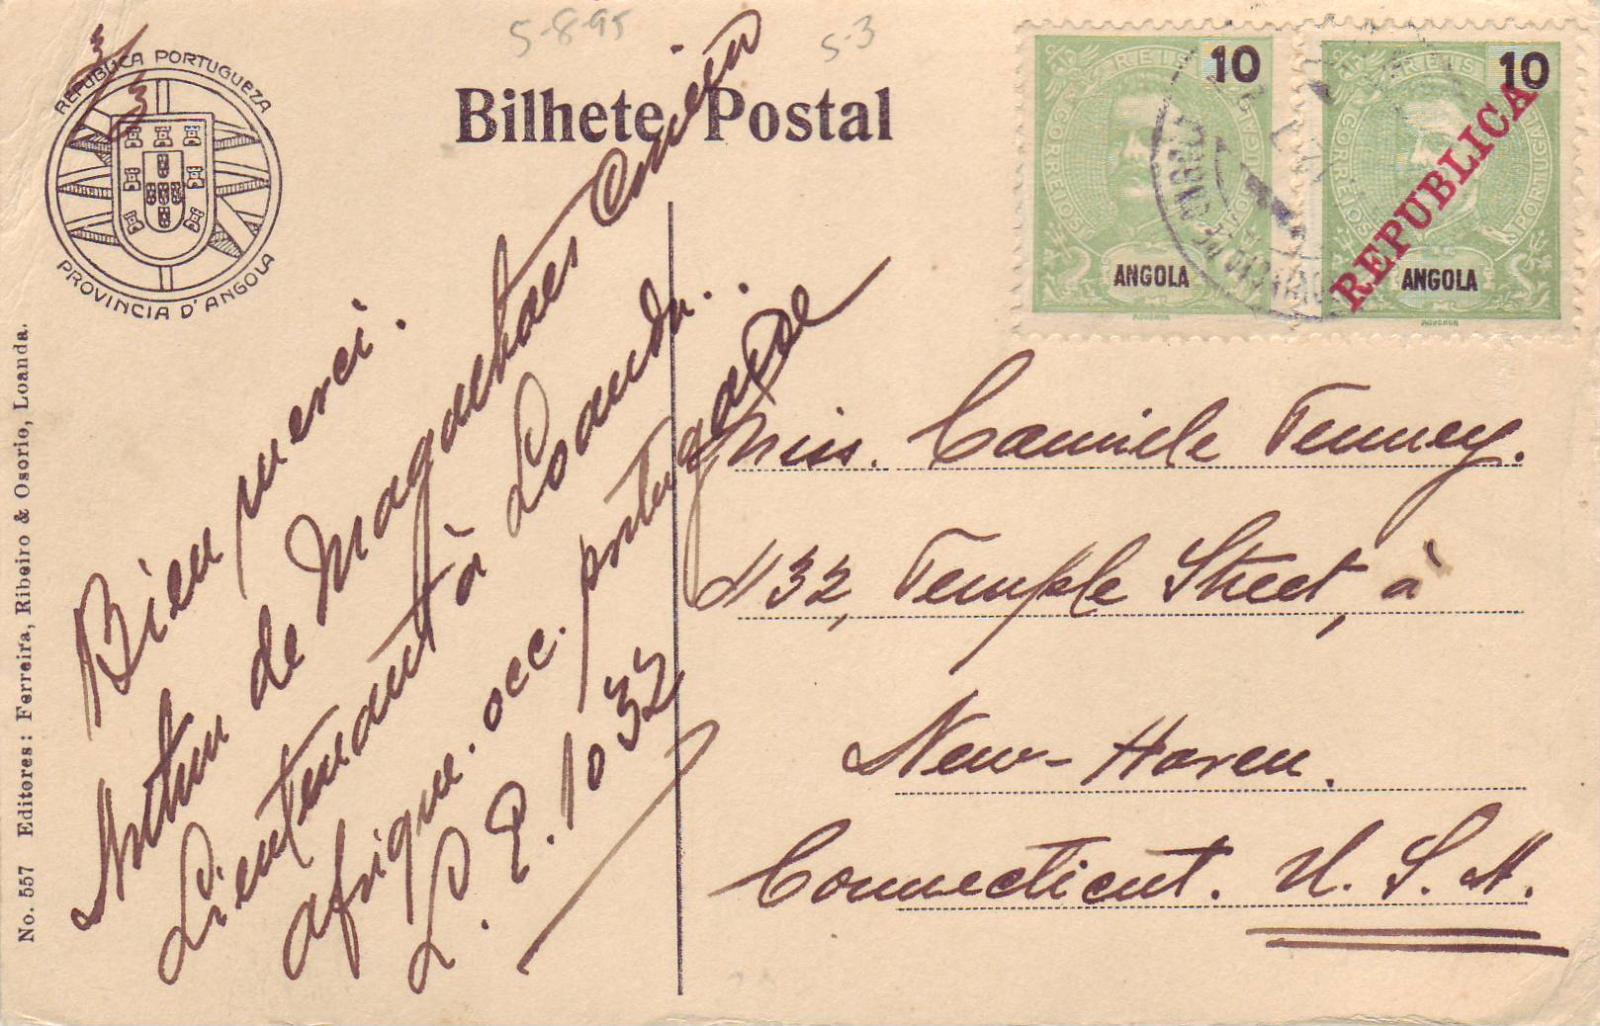 5-8-95
5-3
REPUBLICA PORTUGUEZA
PROVINCIA D'ANGOLA
Bilhete Postal
REIS
10
CORREIOS
ANGOLA
REIS
10
CORREIOS
PORTUGUAL
ANGOLA
REPUBLICA
No. 557 Editores: Ferreira, Ribeiro & Osorio, Loanda.
Bien merci.
Arthur de Magalhães
Lieutenant à Loanda..
afrique. occ. portugaise
L. P. 1032
Miss. Camiele Tenney.
432, Temple Street, à
New-Haven.
Connecticut. U. S. A.